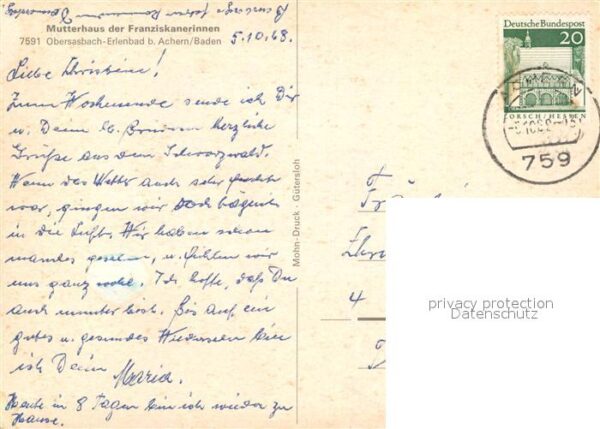 Mutterhaus der Franziskanerinnen
7591 Obersasbach-Erlenbad b. Achern/Baden
5.10.68.
Liebe Christine!
Zum Wochenende sende ich Dir
u. Deinen lb. herzliche
Grüße aus dem Schwarzwald.
Wenn das Wetter auch sehr feucht
war, gingen wir doch täglich
in die Luft. Wir haben schon
manches gesehen, u. fühlen wir
uns ganz wohl. Ich hoffe, daß Du
auch munter bist. Bis auf ein
gutes u. gesundes Wiedersehen bin
ich Dein
Maria.
Heute in 8 Tagen bin ich wieder zu
Hause.
Mohn-Druck · Gütersloh
Deutsche Bundespost
20
LORSCH/HESSEN
759
4
privacy protection
Datenschutz